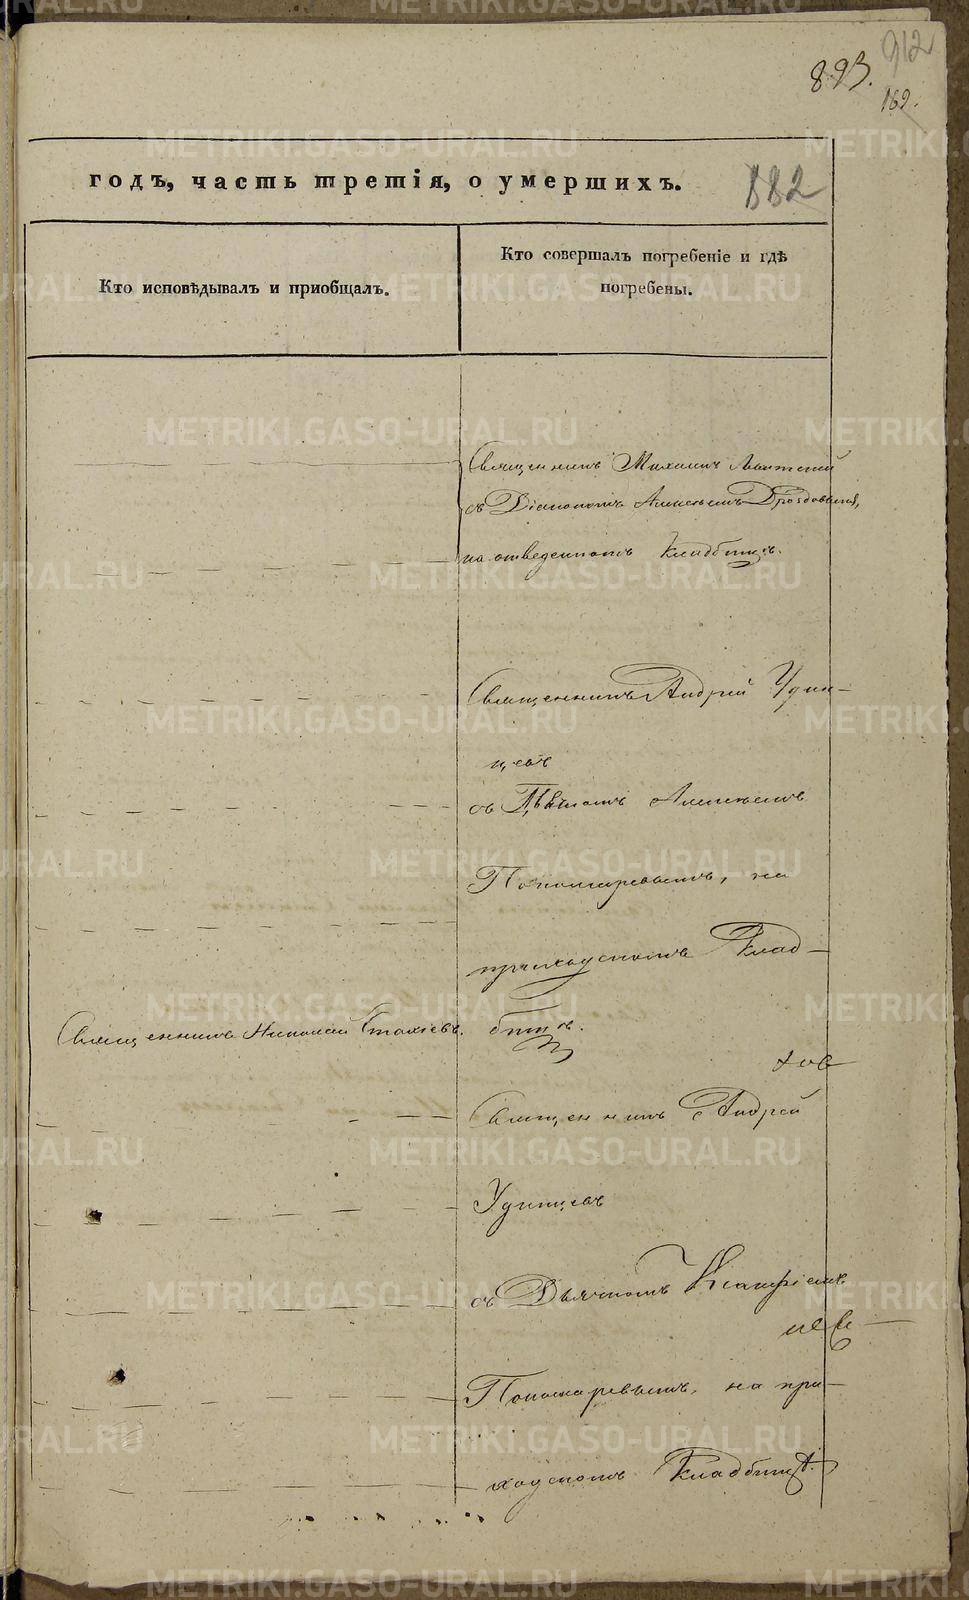 893.
912
169.
годъ, часть третія, о умершихъ.
882
Кто исповѣдывалъ и приобщалъ.
Кто совершалъ погребеніе и гдѣ
погребены.
Священникъ Михаилъ
съ Діакономъ Алексѣемъ Дроздовымъ,
на отведенномъ кладбищѣ.
Священникъ Андрей Удин-
цевъ
съ Дьячкомъ Алексѣемъ
Пономаревымъ, на
приходскомъ Клад-
бищѣ.
Священникъ Николай Стахіевъ.
Священникъ Андрей
Удинцевъ
съ Дьячкомъ
Пономаревымъ, на при-
ходскомъ Кладбищѣ.
METRIKI.GASO-URAL.RU